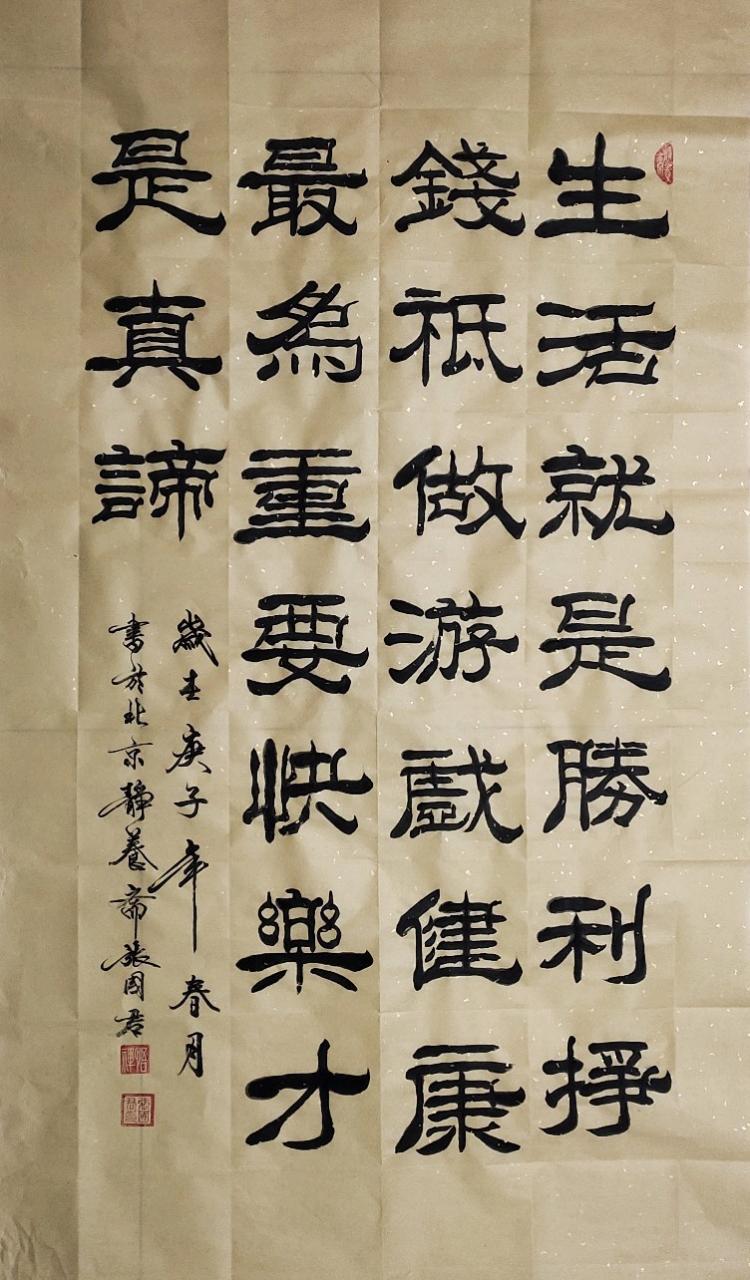 生活就是勝利掙
錢祇做游戲健康
最為重要快樂才
是真諦
歲在庚子年春月
書於北京靜養齋張國君